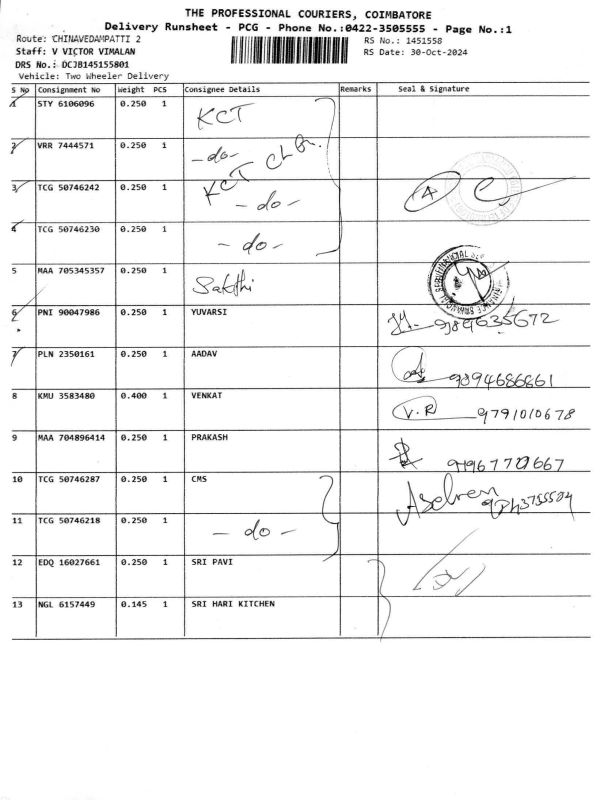 THE PROFESSIONAL COURIERS, COIMBATORE
Delivery Runsheet - PCG - Phone No.:0422-3505555 - Page No.:1
Route: CHINAVEDAMPATTI 2
RS No.: 1451558
Staff: V VICTOR VIMALAN
RS Date: 30-Oct-2024
DRS No.: DCJB145155801
Vehicle: Two Wheeler Delivery
S No Consignment No Weight PCS Consignee Details Remarks Seal & Signature
1 STY 6106096 0.250 1 KCT
2 VRR 7444571 0.250 1 -do-
KCT
3 TCG 50746242 0.250 1 -do-
A
4 TCG 50746230 0.250 1 -do-
5 MAA 705345357 0.250 1 Sakthi
6 PNI 90047986 0.250 1 YUVARSI
9789635672
7 PLN 2350161 0.250 1 AADAV
9894686861
8 KMU 3583480 0.400 1 VENKAT
V.R 9791010678
9 MAA 704896414 0.250 1 PRAKASH
10 TCG 50746287 0.250 1 CMS
11 TCG 50746218 0.250 1 -do-
12 EDQ 16027661 0.250 1 SRI PAVI
13 NGL 6157449 0.145 1 SRI HARI KITCHEN